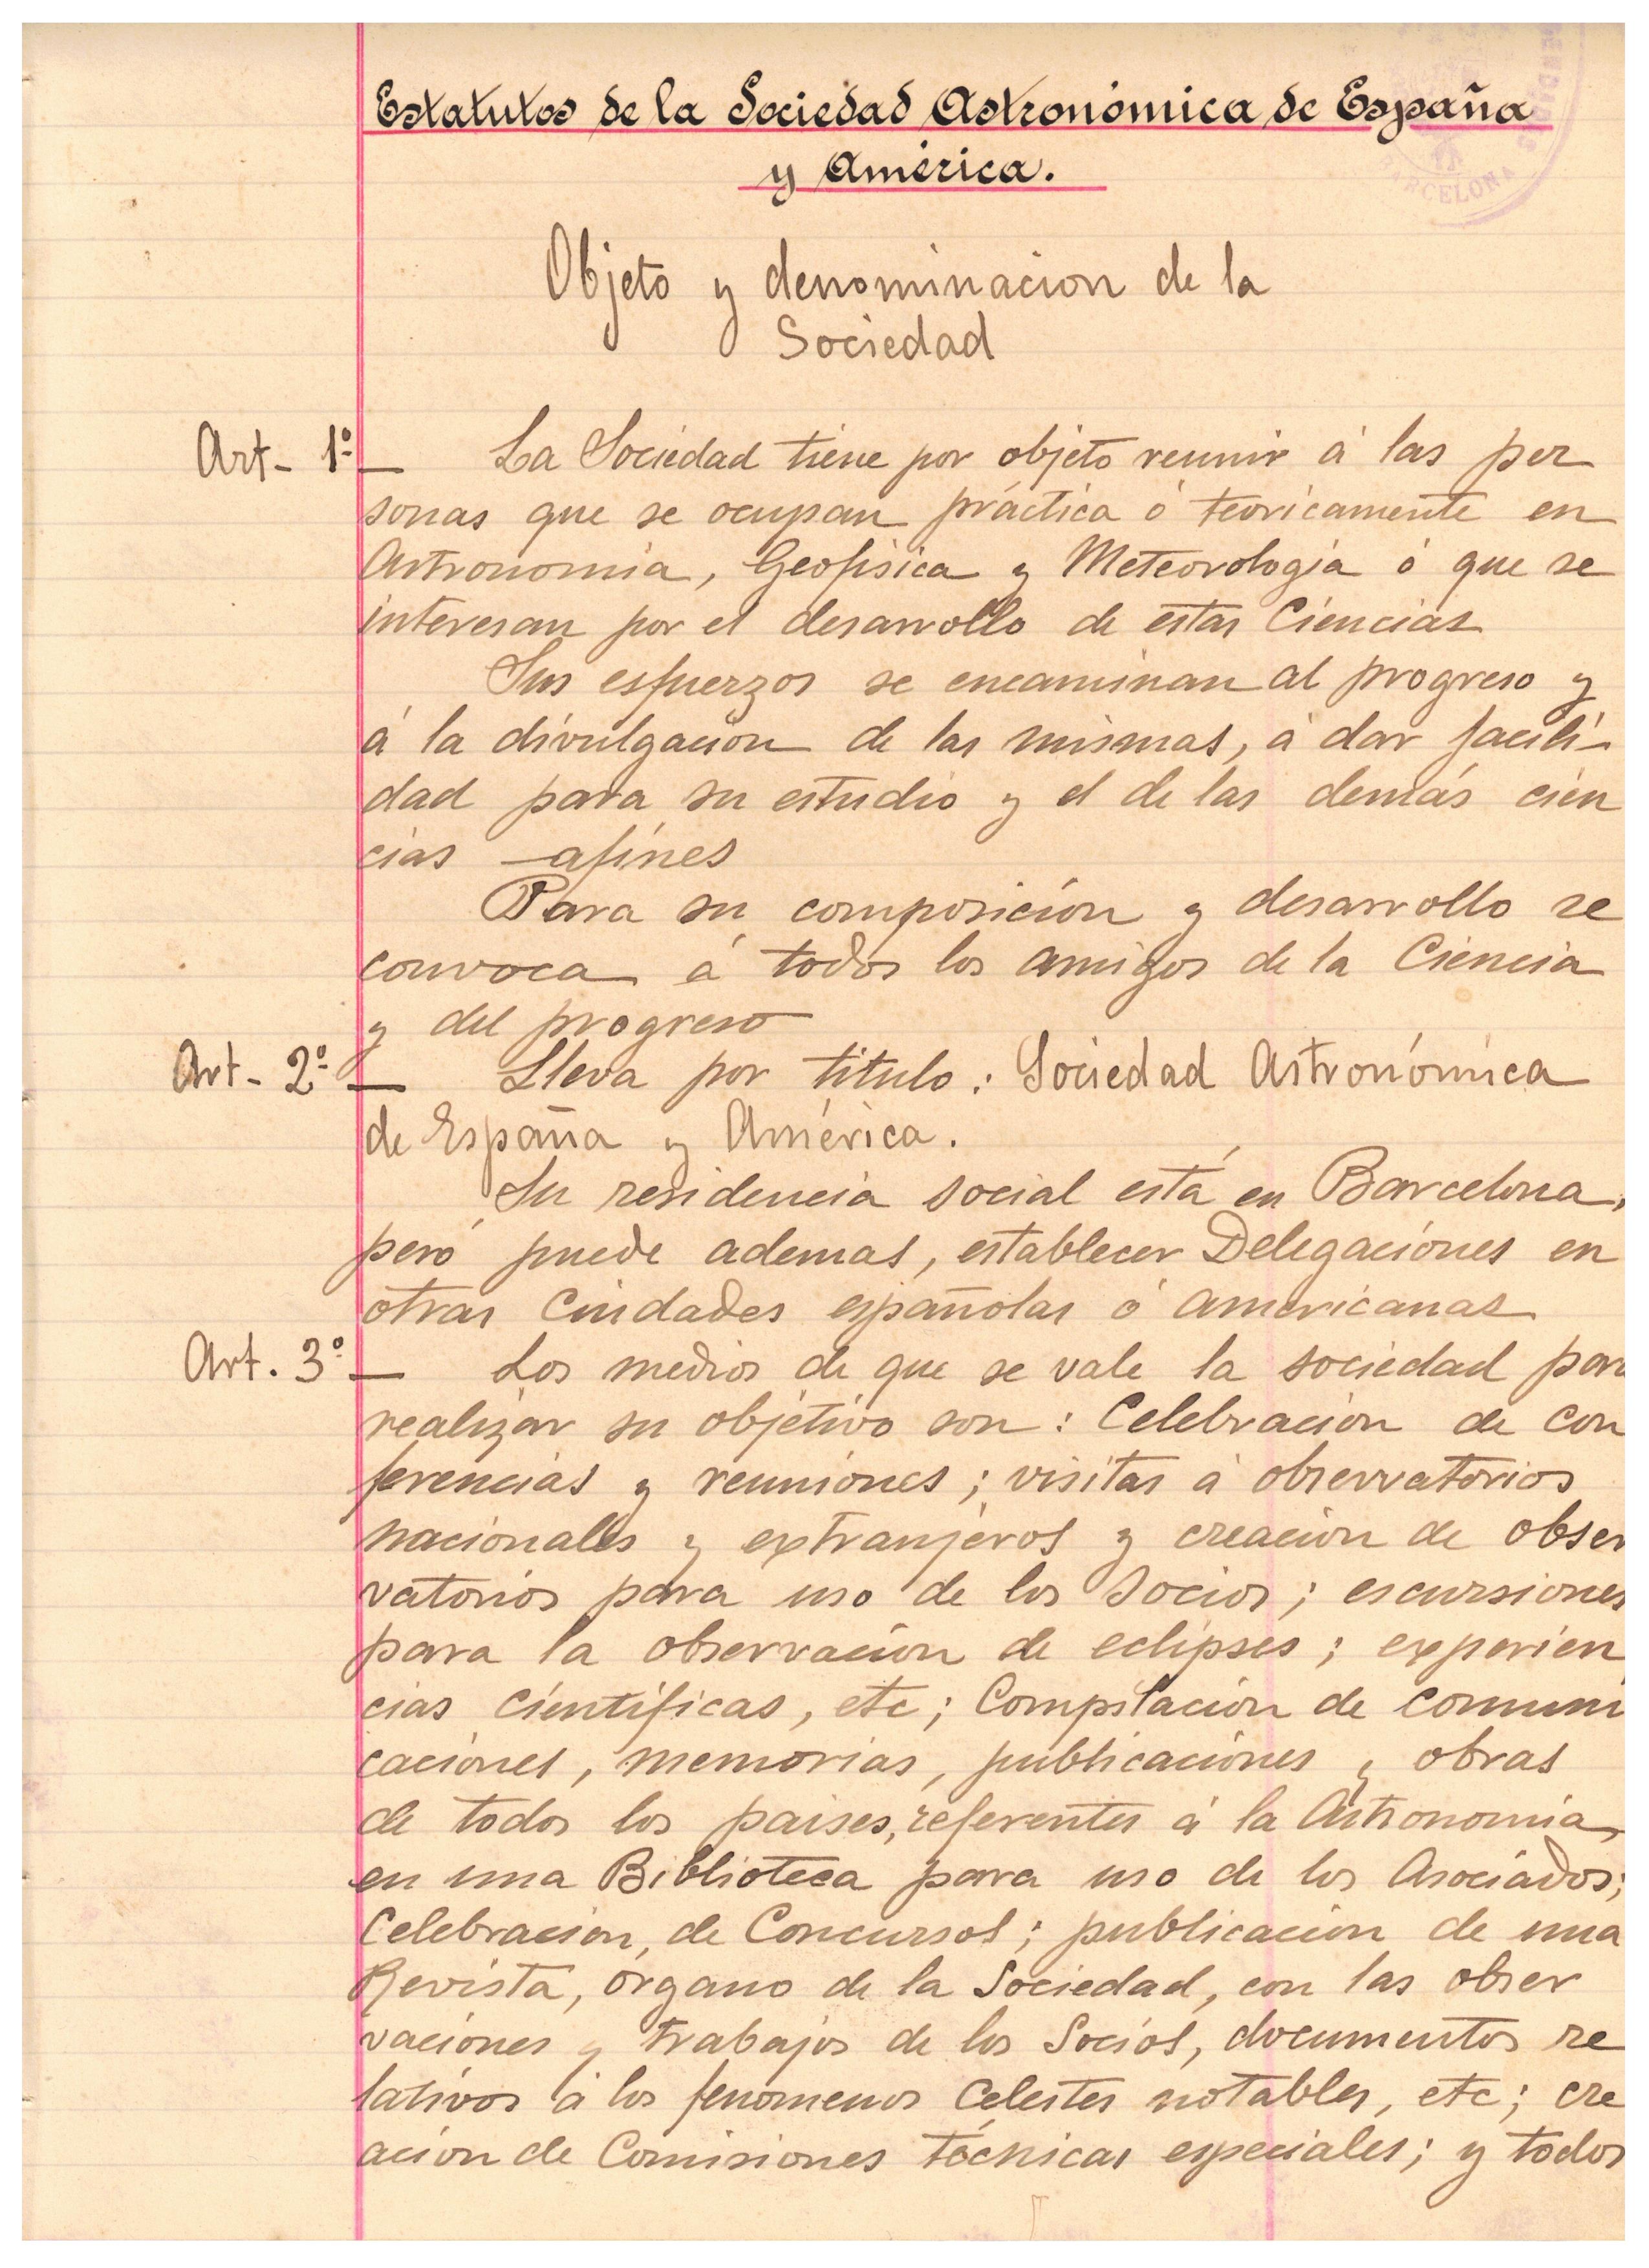 Estatutos de la Sociedad Astronómica de España
y América.
BARCELONA
Objeto y denominacion de la
Sociedad
Art- 1º- La Sociedad tiene por objeto reunir á las per
sonas que se ocupan práctica ó teoricamente en
Astronomia, Geofísica y Meteorologia ó que se
interesan por el desarrollo de estas Ciencias
Sus esfuerzos se encaminan al progreso y
á la divulgacion de las mismas, á dar facili-
dad para su estudio y el de las demás cien
cias afines
Para su composición y desarrollo se
convoca á todos los amigos de la Ciencia
y del progreso
Art- 2º- Lleva por titulo: Sociedad Astronómica
de España y América.
Su residencia social está en Barcelona,
peró puede ademas, establecer Delegaciones en
otras Ciudades españolas ó americanas
Art. 3º- Los medios de que se vale la sociedad para
realizar su objetivo son: Celebracion de con
ferencias y reuniones; visitas á observatorios
nacionales y extranjeros y creacion de obser
vatorios para uso de los Socios; escursiones
para la observacion de eclipses; experien
cias científicas, etc; Compilacion de comuni
caciones, memorias, publicaciones y obras
de todos los paises, referentes á la Astronomia,
en una Biblioteca para uso de los Asociados;
Celebracion, de Concursos; publicacion de una
Revista, órgano de la Sociedad, con las obser
vaciones y trabajos de los Socios, documentos re
lativos á los fenomenos Celestes notables, etc; cre
acion de Comisiones técnicas especiales; y todos